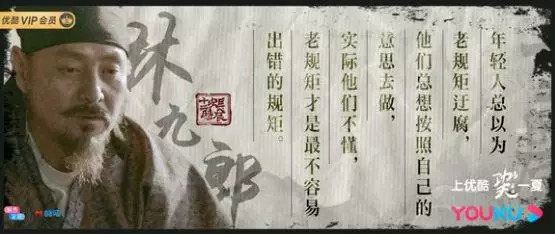 优酷 VIP 会员
年轻人总以为
老规矩迂腐，
他们总想按照自己的
意思去做，
实际他们不懂，
老规矩才是最不容易
出错的规矩。
林九郎
上优酷 一夏
YOUKU